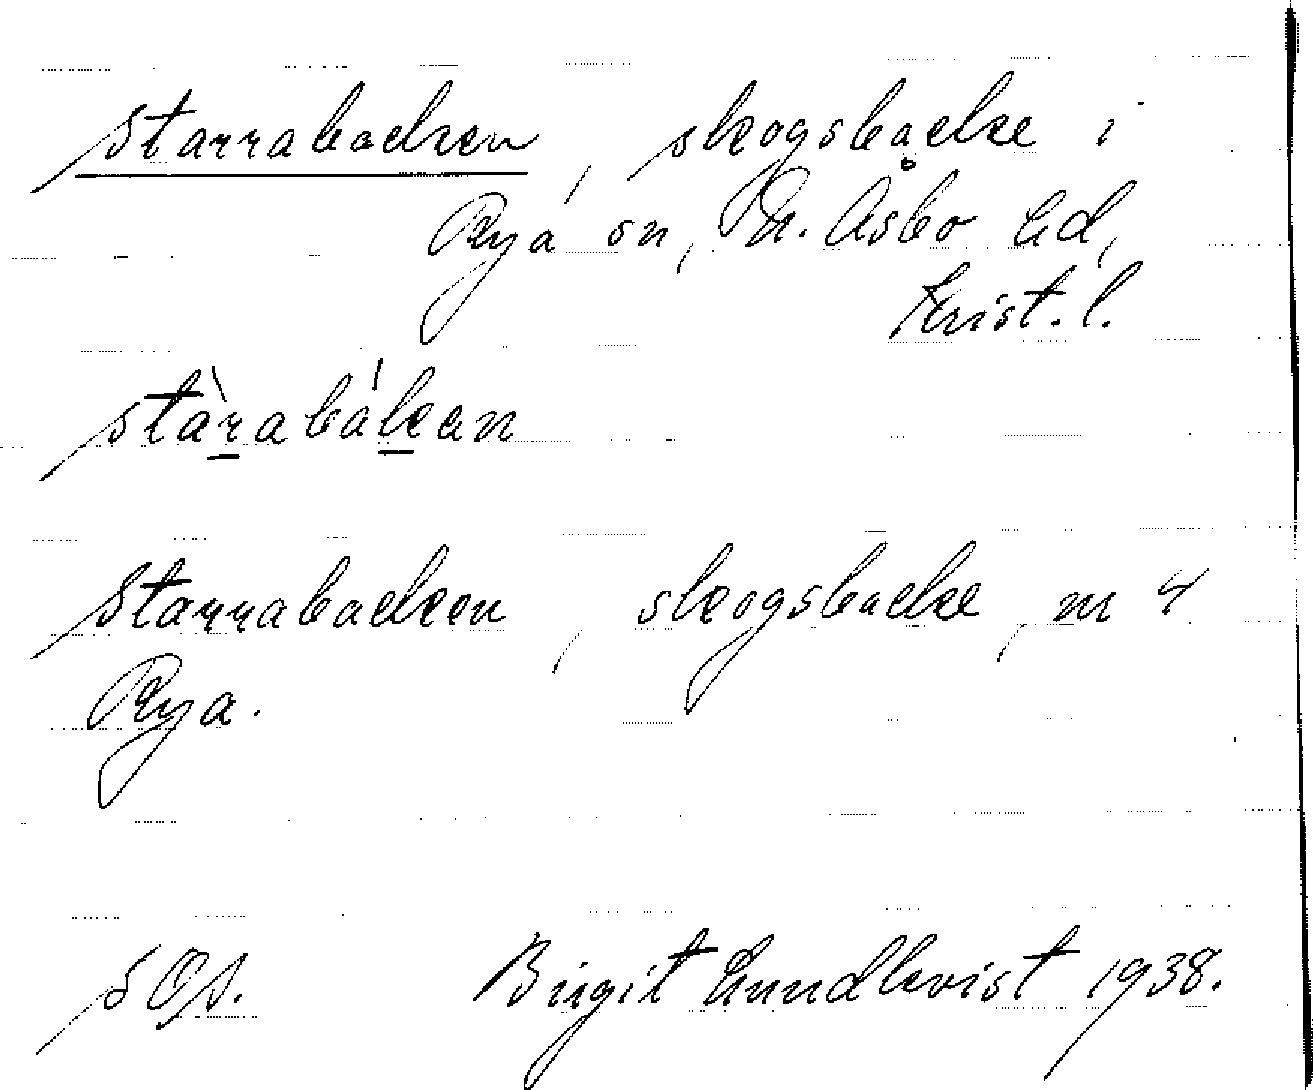 Starrabacken, skogsbacke i
Rya sn, N. Åsbo hd,
Krist. l.
stàrabákan
Starrabacken, skogsbacke, nr 4
Rya.
SOA. Birgit Lundkvist 1938.